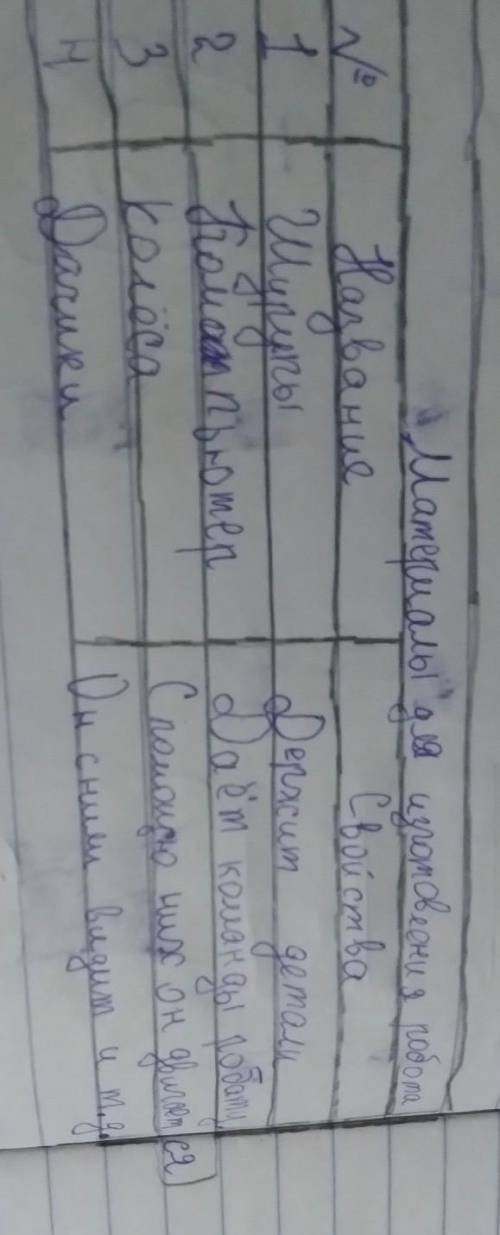 Материалы для изготовеония робота
№ Название Свойства
1 Шурупы Держит детали
2 Компьютер Даёт команды роботу
3 колёса С помощю них он двигается
4 Дачики Он сними видит и т.д.